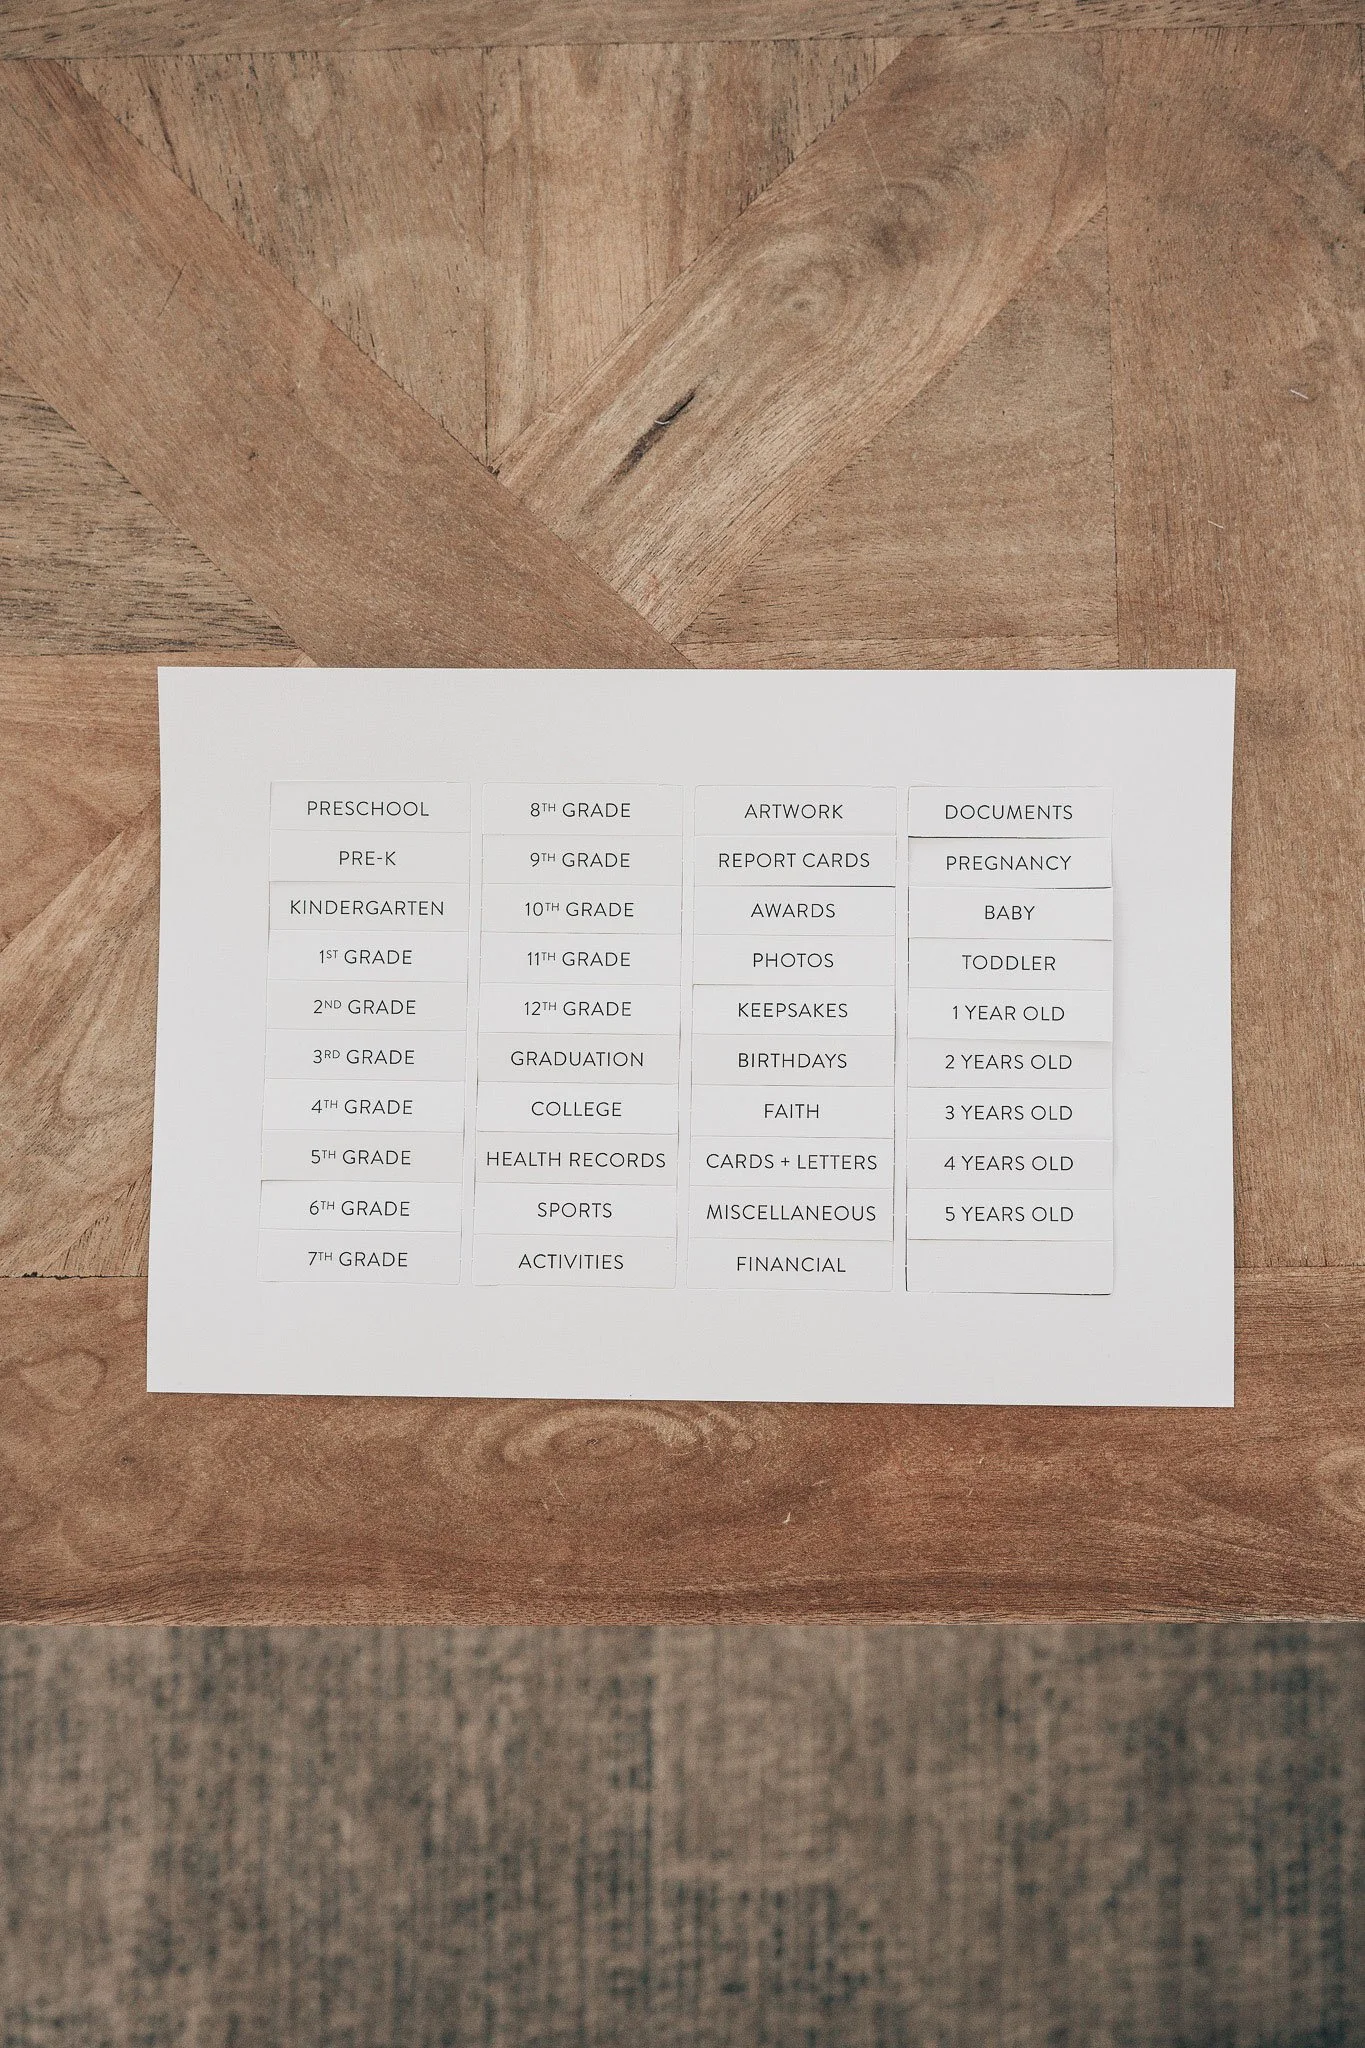 PRESCHOOL
PRE-K
KINDERGARTEN
1ST GRADE
2ND GRADE
3RD GRADE
4TH GRADE
5TH GRADE
6TH GRADE
7TH GRADE
8TH GRADE
9TH GRADE
10TH GRADE
11TH GRADE
12TH GRADE
GRADUATION
COLLEGE
HEALTH RECORDS
SPORTS
ACTIVITIES
ARTWORK
REPORT CARDS
AWARDS
PHOTOS
KEEPSAKES
BIRTHDAYS
FAITH
CARDS + LETTERS
MISCELLANEOUS
FINANCIAL
DOCUMENTS
PREGNANCY
BABY
TODDLER
1 YEAR OLD
2 YEARS OLD
3 YEARS OLD
4 YEARS OLD
5 YEARS OLD